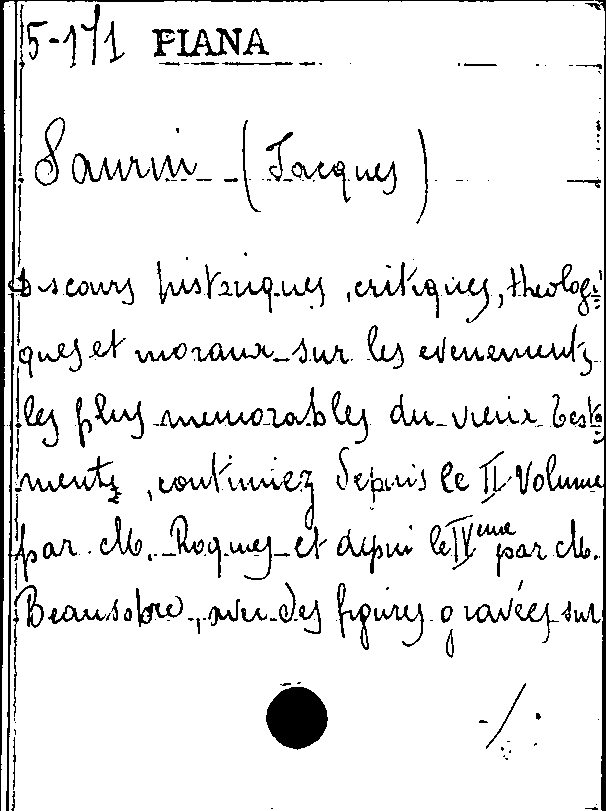 5-171 PIANA
Saurin (Jacques)
Discours historiques, critiques, theologi
ques et moraux sur les evenements
les plus memorables du vieux Testa
ments, continuez depuis le II Volume
par M. Roques et depui le IVeme par M.
Beausobre, avec des figures gravées sur
-/.